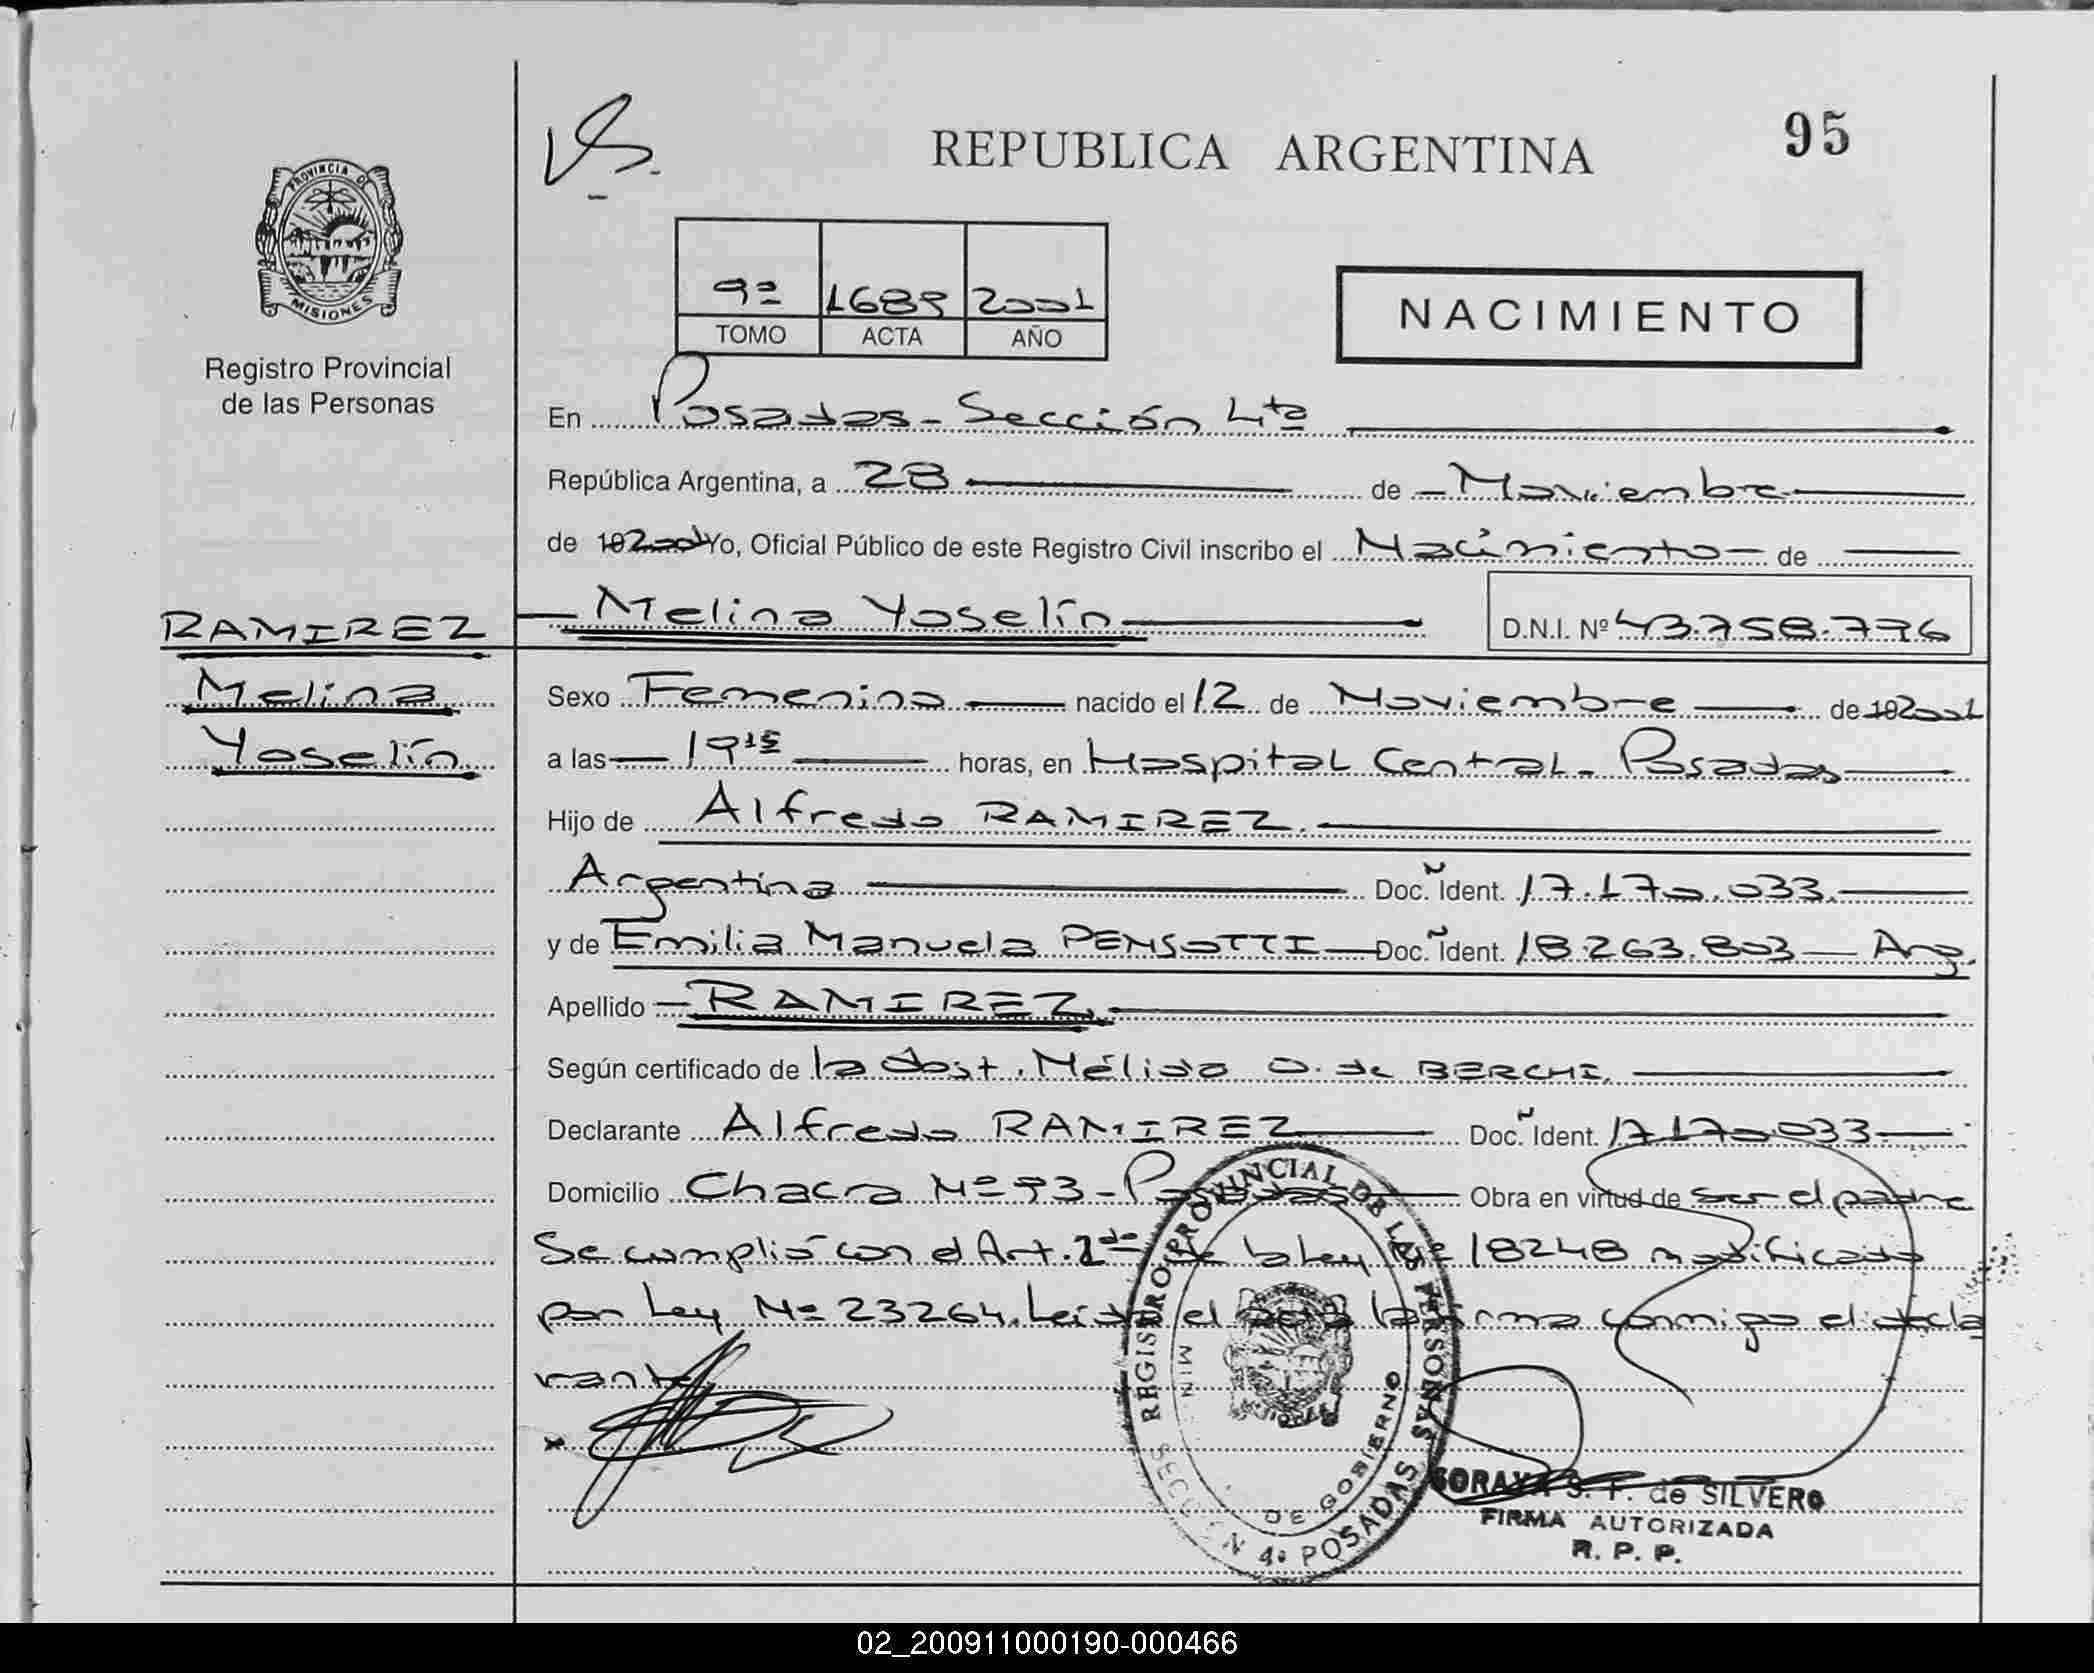 95
REPUBLICA ARGENTINA
PROVINCIA DE
MISIONES
Registro Provincial
de las Personas
9º 1689 2001
TOMO ACTA AÑO
NACIMIENTO
En Posadas - Sección 4ta
República Argentina, a 28 de Noviembre
de 192001 Yo, Oficial Público de este Registro Civil inscribo el Nacimiento de
RAMIREZ
Melina
Yoselín
Melina Yoselín D.N.I. Nº 43.758.776
Sexo Femenino nacido el 12 de Noviembre de 192001
a las 19 15 horas, en Hospital Central - Posadas
Hijo de Alfredo RAMIREZ.
Argentina Doc. Ident. 17.170.033.
y de Emilia Manuela PENSOTTI Doc. Ident. 18.263.803 Arg.
Apellido RAMIREZ.
Según certificado de la Obst. Nélida O. de BERCHI.
Declarante Alfredo RAMIREZ Doc. Ident. 17.170.033
Domicilio Chacra Nº 93 - Posadas Obra en virtud de ser el padre
Se cumplió con el Art. 2do de la Ley Nº 18248 modificado
por Ley Nº 23264. Leída el acta la firma conmigo el decla
rante.
x
REGISTRO PROVINCIAL DE LAS PERSONAS
MIN. DE GOBIERNO
SECCION 4ª POSADAS
SORAYA S. F. de SILVERO
FIRMA AUTORIZADA
R. P. P.
02_200911000190-000466